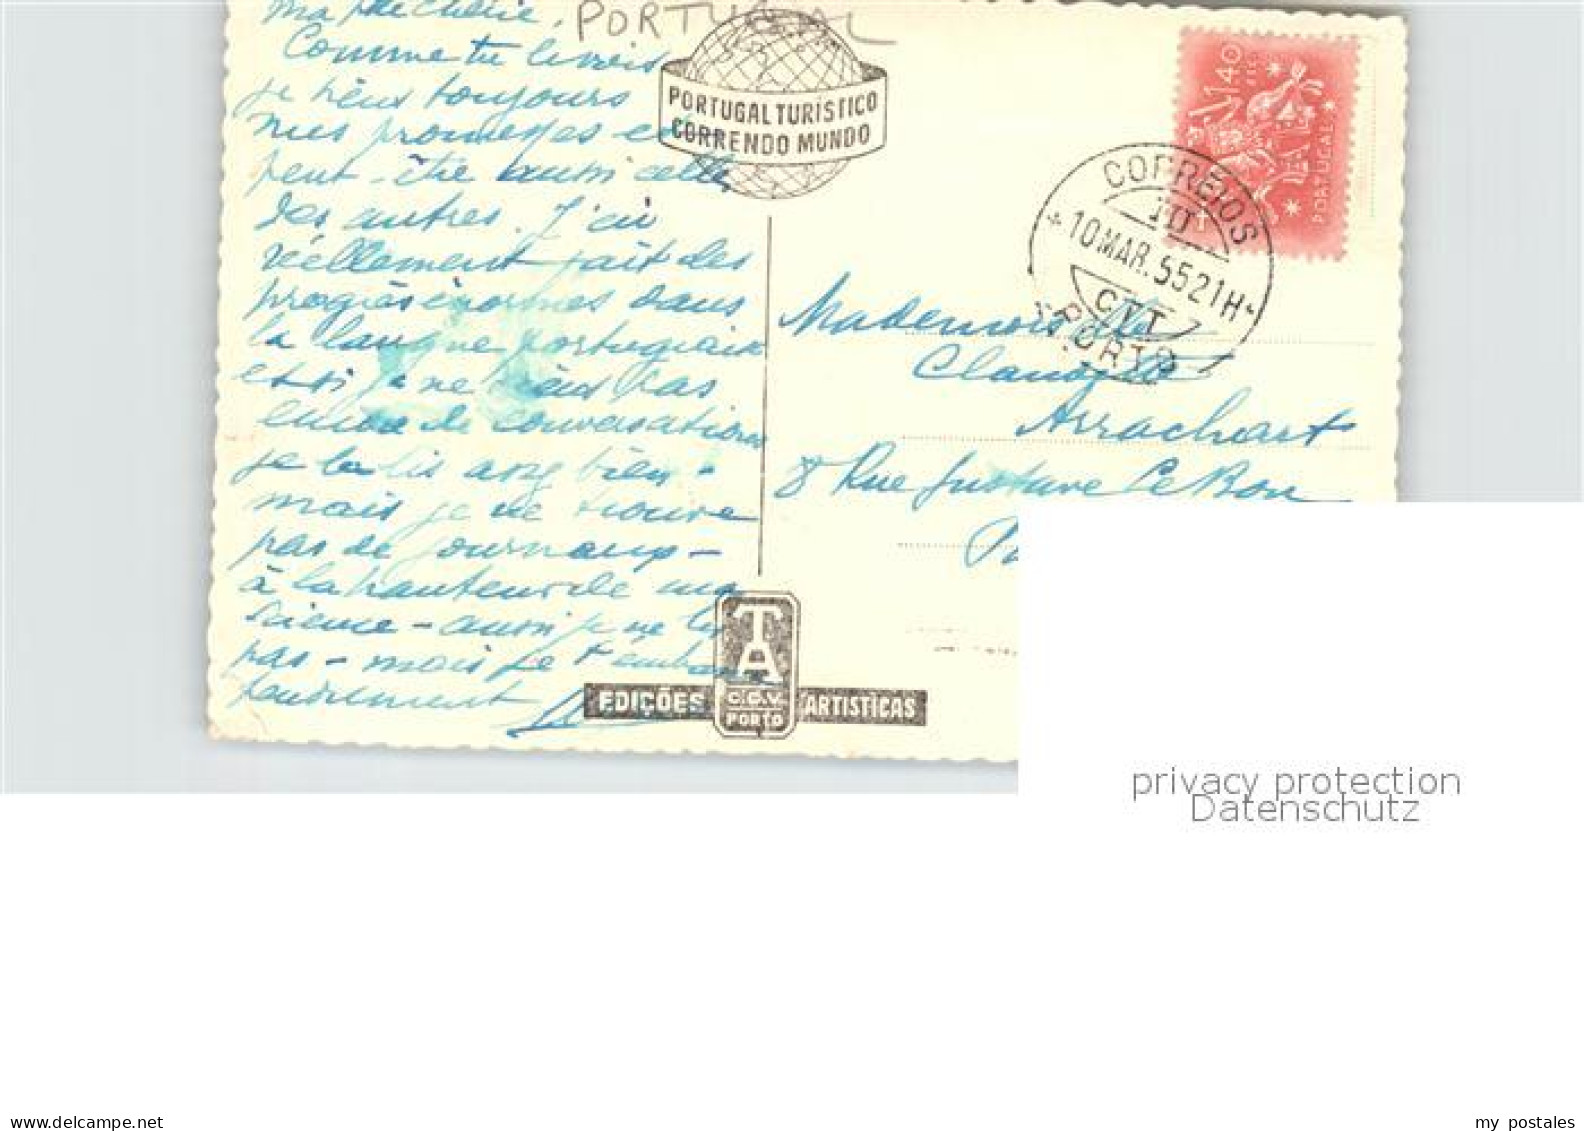 ma chérie, PORTUGAL
Comme tu le vois
je tiens toujours
mes promesses et
peut-être aussi celles
des autres. J'ai
réellement fait des
progrès énormes dans
la langue portugaise
et si je ne tiens pas
encore de conversations
je la lis assez bien -
mais je ne trouve
pas de journaux -
à la hauteur de ma
science - aussi je ne lis
pas - mais je t'embrasse
tendrement
PORTUGAL TURÍSTICO
CORRENDO MUNDO
1$40
PORTUGAL
CORREIOS
10 MAR. 55 21H
CTT
PORTO
Mademoiselle
Arrachart
8 Rue Gustave Le Bon
TA
EDIÇÕES C.C.V. ARTISTICAS
PORTO
privacy protection
Datenschutz
www.delcampe.net
my_postales